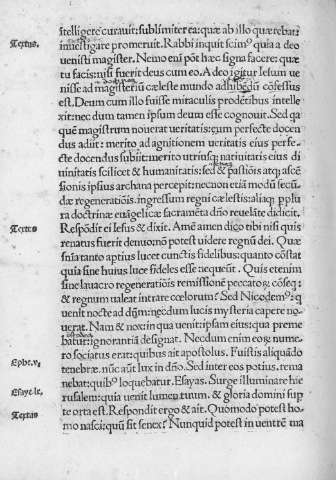 ſtelligere curauit: ſublimiter ea: quæ ab illo quærebat:
Textus. inueſtigare promeruit. Rabbi inquit ſcimꝰ quia a deo
ueniſti magiſter. Nemo em̄ pōt hæc ſigna facere: quæ
tu facis: niſi fuerit deus cum eo. A deo igitur Ieſum ue
niſſe ad magiſteriū cæleſte mundo adhibēdū cōfeſſus
eſt. Deum cum illo fuiſſe miraculis prodētibus intelle
xit: nec dum tamen ipſum deum eſſe cognouit. Sed qa
quem magiſtrum nouerat ueritatis: eum perfecte docen
dus adiit: merito ad agnitionem ueritatis eius perfe-
cte docendus ſubiit: merito utriuſqꝫ natiuitatis eiꝰ di
uinitatis ſcilicet & humanitatis: ſed & paſſiōis atqꝫ aſcē
ſionis ipſius archana percepit: necnon etiā modū ſecū
dæ regeneratiōis. ingreſſum regni cæleſtis: aliaqꝫ pplu
ra doctrinæ euāgelicæ ſacramēta dn̄o reuelāte didicit.
Textus Reſpōdit ei Ieſus & dixit. Amē amen dico tibi niſi quis
renatus fuerit denuo nō poteſt uidere regnū dei. Quæ
ſn̄ia tanto aptius lucet cunctis fidelibus: quanto cōſtat
quia ſine huius luce fideles eſſe nequeūt. Quis etenim
ſine lauacro regeneratiōis remiſſionē peccatoꝝ & cōſeqꝫ:
& regnum ualeat intrare cœlorum? Sed Nicodemꝰ: q
uenit nocte ad dn̄m: necdum lucis myſteria capere no-
uerat. Nam & nox: in qua uenit: ipſam eius: qua preme
batur: ignorantiā deſignat. Necdum enim eoꝝ nume-
ro ſociatus erat: quibus ait apoſtolus. Fuiſtis aliquādo
Ephe. v. tenebræ. nūc aūt lux in dn̄o. Sed inter eos potius. rema
nebat: quibꝰ loquebatur. Eſayas. Surge illuminare hie
Eſaye. lx. ruſalem: quia uenit lumen tuum. & gloria domini ſup
te orta eſt. Reſpondit ergo & ait. Quomodo poteſt ho-
Textus mo naſci: quū ſit ſenex? Nunquid poteſt in uentrē ma